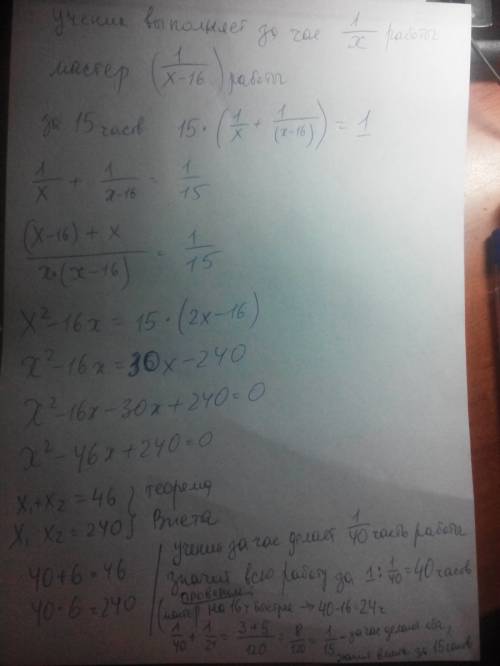 ученик выполняет за час 1/x работы
мастер (1/(x-16)) работы
за 15 часов 15·(1/x + 1/(x-16)) = 1
1/x + 1/(x-16) = 1/15
((x-16) + x)/(x·(x-16)) = 1/15
x²-16x = 15·(2x-16)
x²-16x = 30x-240
x²-16x-30x+240=0
x²-46x+240=0
x₁+x₂=46 } теорема
x₁·x₂=240 } Виета
40+6=46
40·6=240
ученик за час делает 1/40 часть работы
значит всю работу за 1:1/40=40 часов
проверим
(мастер) на 16ч быстрее → 40-16=24ч
1/40 + 1/24 = (3+5)/120 = 8/120 = 1/15 - за час делают оба,
вместе за 15 часов